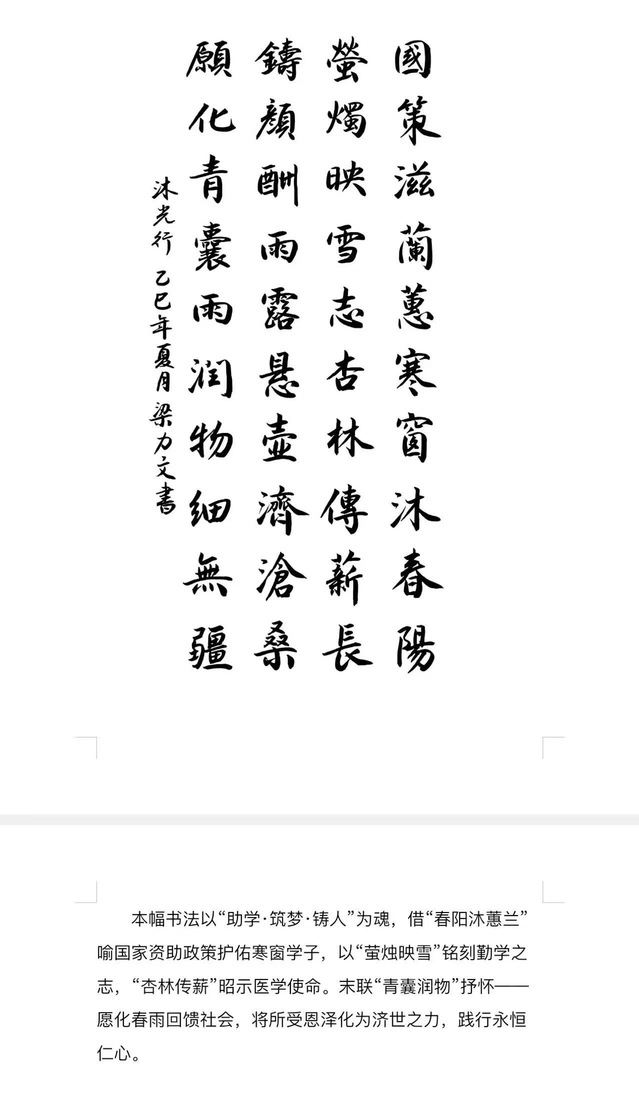 國策滋蘭蕙寒窗沐春陽
螢燭映雪志杏林傳薪長
鑄顏酬雨露懸壺濟滄桑
願化青囊雨潤物細無疆
沐光行 乙巳年夏月 梁力文書
本幅书法以“助学·筑梦·铸人”为魂，借“春阳沐蕙兰”
喻国家资助政策护佑寒窗学子，以“萤烛映雪”铭刻勤学之
志，“杏林传薪”昭示医学使命。末联“青囊润物”抒怀——
愿化春雨回馈社会，将所受恩泽化为济世之力，践行永恒
仁心。